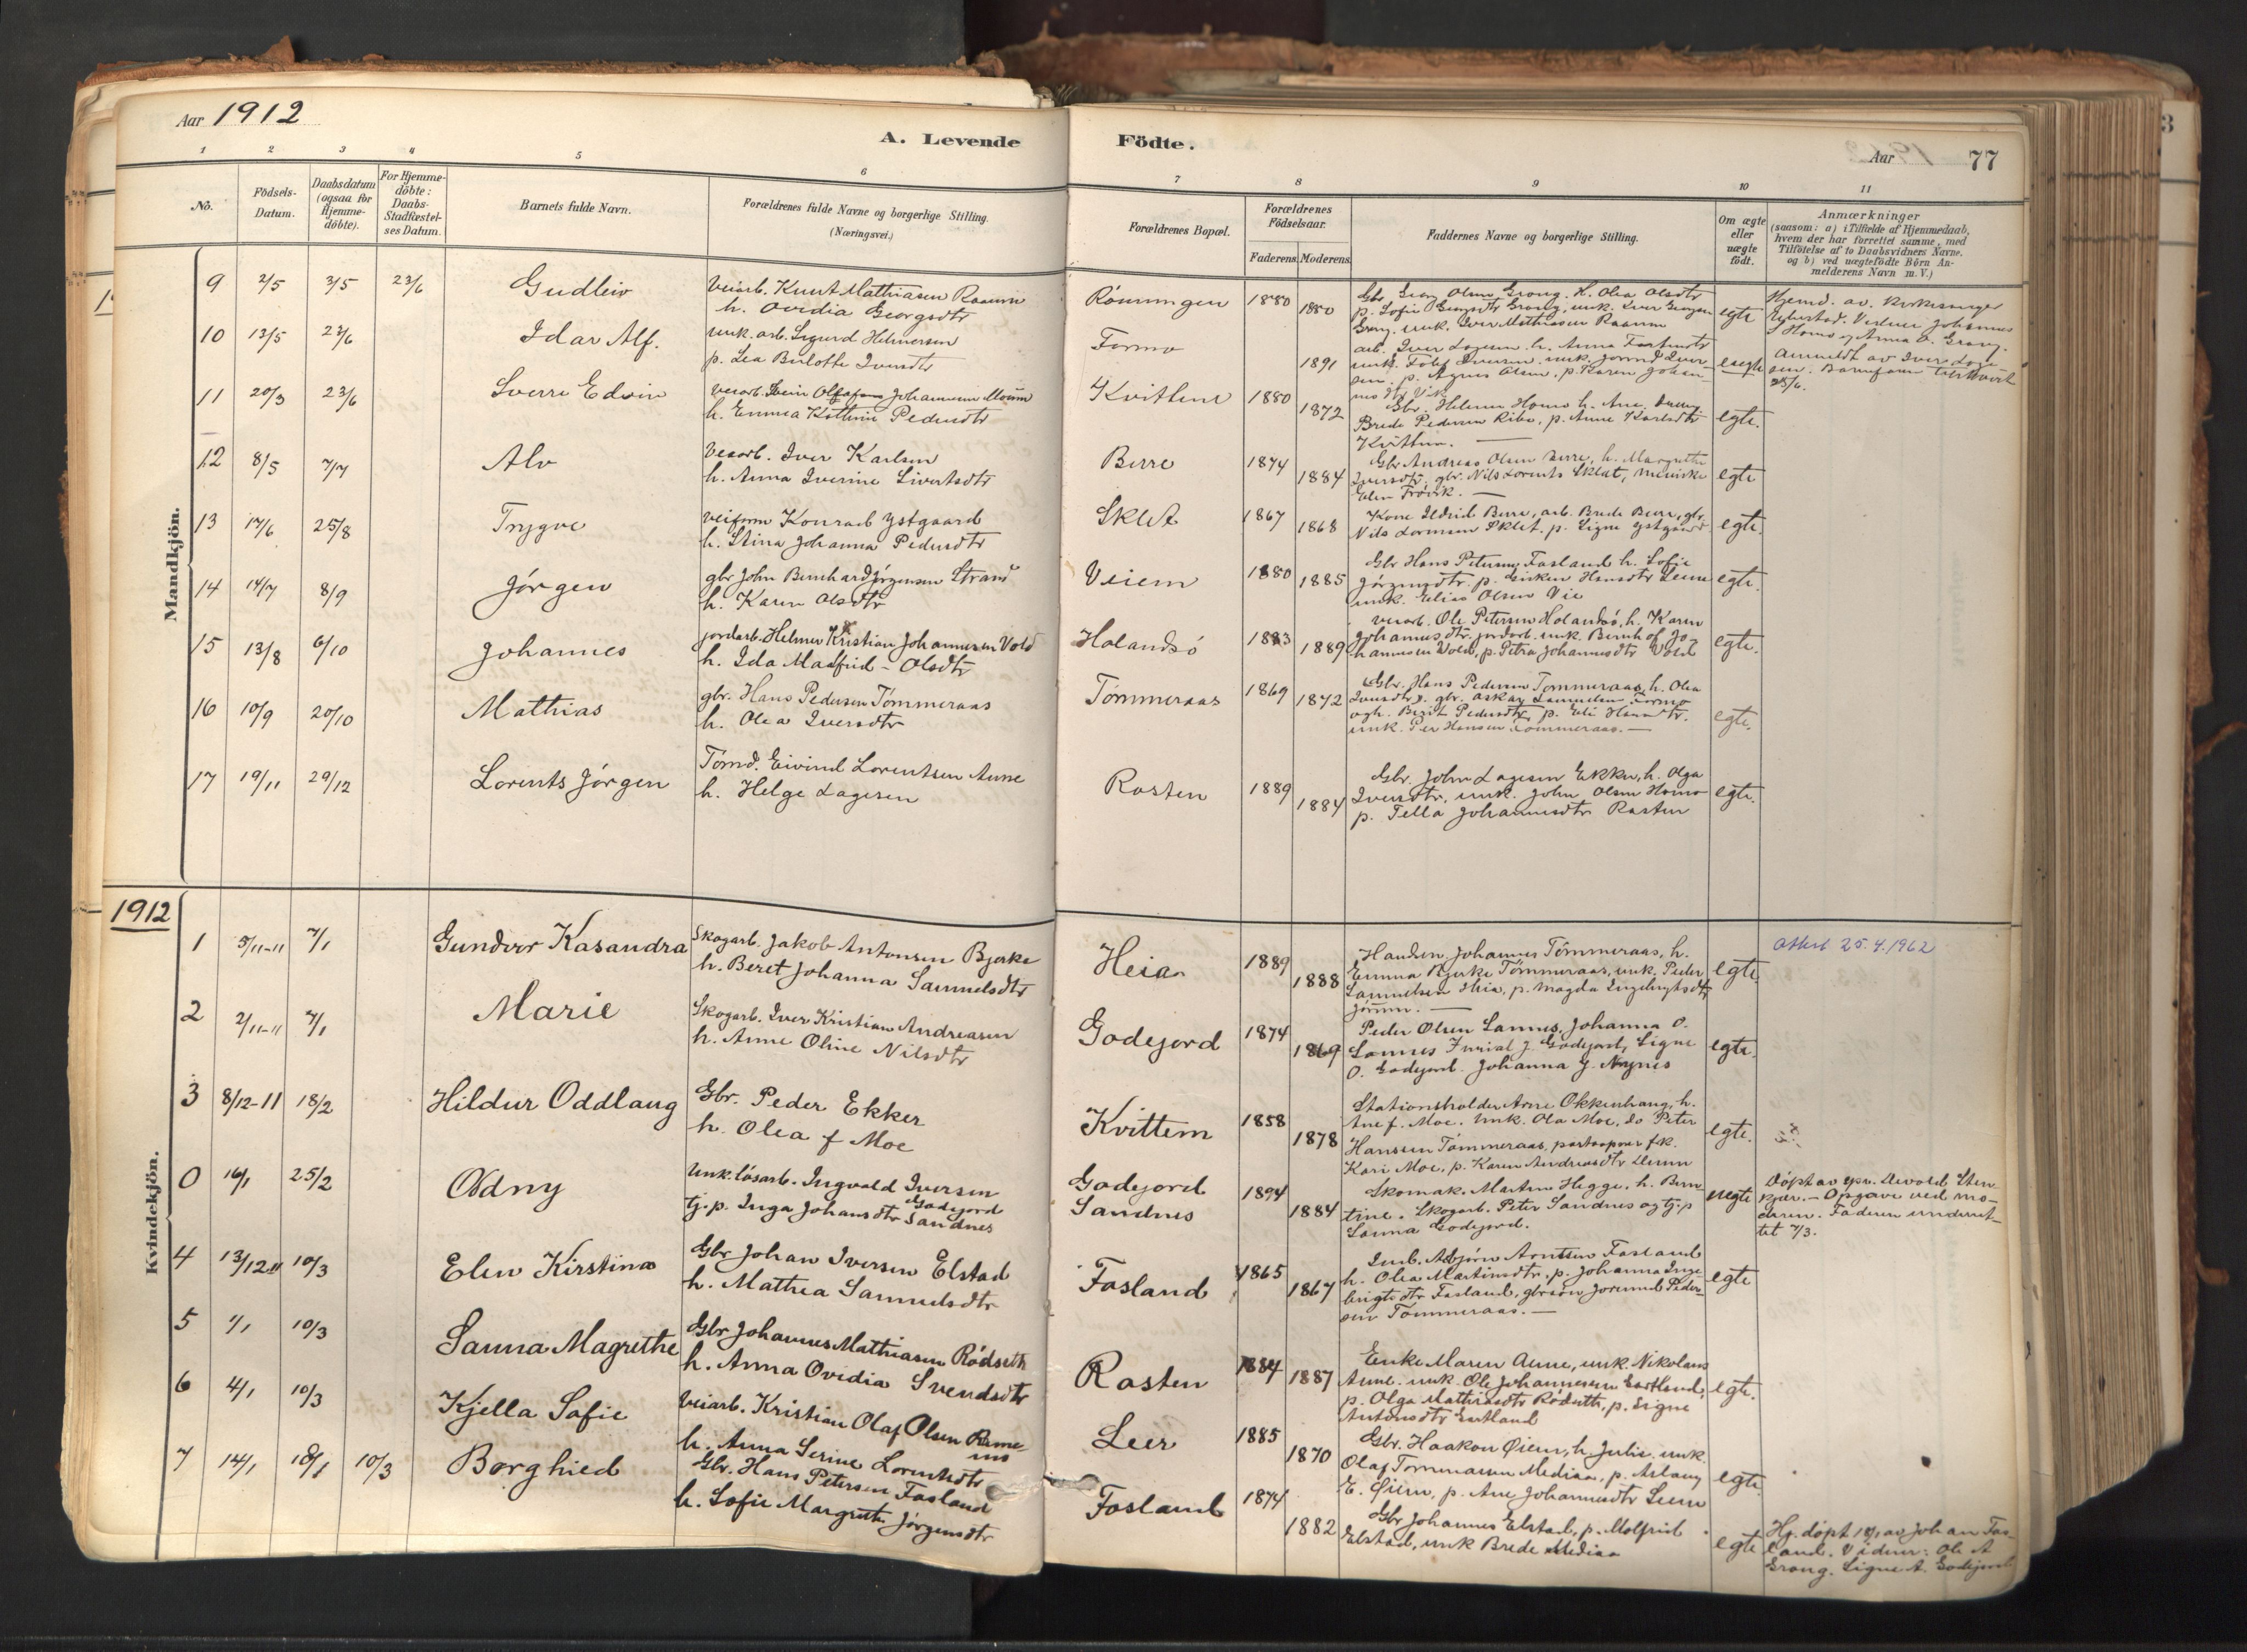 Aar 1912
A. Levende Födte.
Aar 77
1 2 3 4 5 6 7 8 9 10 11
No.
Födsels-
Datum.
Daabsdatum
(ogsaa for
Hjemme-
döbte).
For Hjemme-
döbte:
Daabs-
Stadfæstel-
ses Datum.
Barnets fulde Navn.
Forældrenes fulde Navne og borgerlige Stilling.
(Næringsvei.)
Forældrenes Bopæl.
Forældrenes
Födselsaar.
Faderens. Moderens.
Faddernes Navne og borgerlige Stilling.
Om ægte
eller
uægte
födt.
Anmærkninger
(saasom: a) i Tilfælde af Hjemmedaab,
hvem der har forrettet samme, med
Tilföielse af to Daabsvidners Navne.
og b) ved uægtefödte Börn An-
melderens Navn m. V.)
Mandkjön.
9 2/5 3/5 23/6 Gudleiv
Veiarb. Knut Mathiasen Raaum
h. Ovidia Georgsdtr
Rönningen 1880 1880
Gbr Georg Olsen Grong. h. Olea Olsdtr
p. Sofie Georgsdtr Grong, unk. Iver Georgsen
Grong. unk. Iver Mathiasen Raaum
egte
Hjemd. av. Kirkesanger
Vidner Johannes
Homo og Anna O. Grong.
10 13/5 23/6 Idar Alf.
unk. arb. Sigurd Helmersen
p. Lea Berlotte Iversdtr
Formo 1891
arb. Iver Lagesen h. Anna
unk. Iversen. unk. Iver-
sen. p. Agnes Olsen, p. Karen Johan-
uegte
Anmeldt av Iver Lage-
sen. Barnefaren
25/6.
11 20/3 23/6 Sverre Edvin
Veiarb. Johannesen Moum
h. Emma Kathrine Pedersdtr
Kvittem 1880 1872
Gbr. Helmer Homo h. Ane,
Brede Pedersen Ribe, p. Anne Karlsdtr
Kvittem.
egte.
12 8/5 7/7 Alv
Veiarb. Iver Karlsen
h. Anna Iverine Sivertsdtr
Berre 1874 1884
Gbr Andreas Olsen Berre, h. Margrethe
Iversdtr. gbr. Nils Lorents Sklet,
Elen Frövik.
egte
13 17/6 25/8 Trygve
veiform Konrad Ystgaard
h. Stina Johanna Pedersdtr
Sklet 1867 1868
Kone Eldrid Berre, arb. Brede Berre, gbr.
Nils Lornsen Sklet. p. Signe Ystgaard
egte.
14 14/7 8/9 Jörgen
gbr John Bernhard Jörgensen Strand
h. Karen Olsdtr
Veiem 1880 1885
Gbr Hans Petersen Fasland h. Sofie
Jörgensdtr. p. Hansdtr Leine
unk. Elias Olsen Vie
egte.
15 13/8 6/10 Johannes
jordarb. Helmer Kristian Johannesen Vold
h. Ida Maafrid Olsdtr
Holandsö 1883 1889
veiarb. Ole Petersen Holandsö, h. Karen
Johannesdtr. jordarb. unk. Bernhof Jo-
hannesen Vold, p. Petra Johannesdtr Vold
egte.
16 10/9 20/10 Mathias
gbr. Hans Pedersen Tömmeraas
h. Olea Iversdtr
Tömmeraas 1869 1872
Gbr. Hans Pedersen Tømmeraas, h. Olea
Iversdtr. gbr. Formo
og h. Berit Pedersdtr, p. Eli Hansdtr.
unk. Per Hansen Tømmeraas.
egte.
17 19/11 29/12 Lorents Jörgen
Tömd. Eivind Lorentsen Aune
h. Helge Lagesen
Rosten 1889 1884
Gbr. John Lagesen Ekker, h. Olga
Iversdtr, unk. John Olsen Homo
p. Tella Johannesdtr Rosten
egte.
1912
Kvindekjön.
1 5/11-11 7/1 Gunvor Kasandra
Skogarb. Jakob Antonsen Bjerke
h. Beret Johanna Samuelsdtr
Heia 1889 1888
Handsm. Johannes Tömmeraas, h.
Emma Bjerke Tömmeraas, unk. Peder
Samuelsen Heia, p. Magda Ingebrigtsdtr
Jörum.
egte.
Attest 25.4.1962
2 2/11-11 7/1 Marie
Skogarb. Iver Kristian Andreasen
h. Anne Oline Nilsdtr
Godejord 1874 1869
Peder Olsen Sannes, Johanna O.
Sannes J. Godejord, Signe
O. Godejord. Johanna J. Nynes
egte.
3 8/12-11 18/2 Hildur Oddlaug
Gbr. Peder Ekker
h. Olea f Moe
Kvittem 1858 1878
Stationsholder Arne Okkenhaug, h.
Ane f. Moe. Unk. Ola Moe, do Peter
Hansen Tömmeraas, fk.
Kari Moe, p. Karen Andreasdtr Devun
egte.
0 16/1 25/2 Odny
Unk. lösarb. Ingvald Iversen
Godejord
tj. p. Inga Johansdtr Sandnes
Godejord
Sandnes 1894 1884
Skomak. Martin Hegge, h. Bern-
tine. Skogarb. Peter Sandnes og tj. p
Sanna Godejord.
uegte
Döpt av spr. Devold Sten-
kjær. - Opgave ved mo-
deren. Faderen underret-
tet 7/3.
4 13/12 11 10/3 Elen Kirstina
Gbr Johan Iversen Elstad
h. Mathea Samuelsdtr
Fasland 1865 1867
Inb. Asbjørn Arntsen Fasland
h. Olea Martinsdtr, p. Johanna Inge
brigtsdtr Fasland, gbrsøn Jorumd Peder-
sen Tömmeraas.
egte
5 1/1 10/3 Sanna Magrethe
Gbr Johannes Mathiasen Rödseth
h. Anna Ovidia Svendsdtr
Rosten 1884 1887
Enke Maren Aune, unk. Nikolaus
Aune. unk. Ole Johannesen Eastland,
p. Olga Mathiasdtr Rödseth, p. Signe
Antonsdtr Eastland
egte.
6 4/1 10/3 Kjella Sofie
Veiarb. Kristian Olaf Olsen
h. Anna Serine Lorentsdtr
Leer 1885 1870
Gbr. Haakon Øiem, h. Julie, unk.
Olaf Tommasen Mediaa, p. Aslaug
E. Øiem, p. Ane Johannesdtr Leem
egte.
7 14/1 18/1 10/3 Borghied
Gbr. Hans Petersen Fasland
h. Sofie Margrethe Jörgensdtr
Fosland 1874 1882
Gbr Johannes Elstad, p. Molfrid
Elstad, unk Brede Mediaa
egte
Hj. döpt 18/1 av Johan Fas-
land. Vidner: Ole A
Grong. Signe A. Godejord